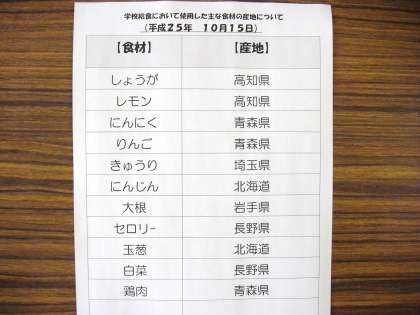 学校給食において使用した主な食材の産地について
(平成25年 10月15日)
【食材】 【産地】
しょうが 高知県
レモン 高知県
にんにく 青森県
りんご 青森県
きゅうり 埼玉県
にんじん 北海道
大根 岩手県
セロリー 長野県
玉葱 北海道
白菜 長野県
鶏肉 青森県